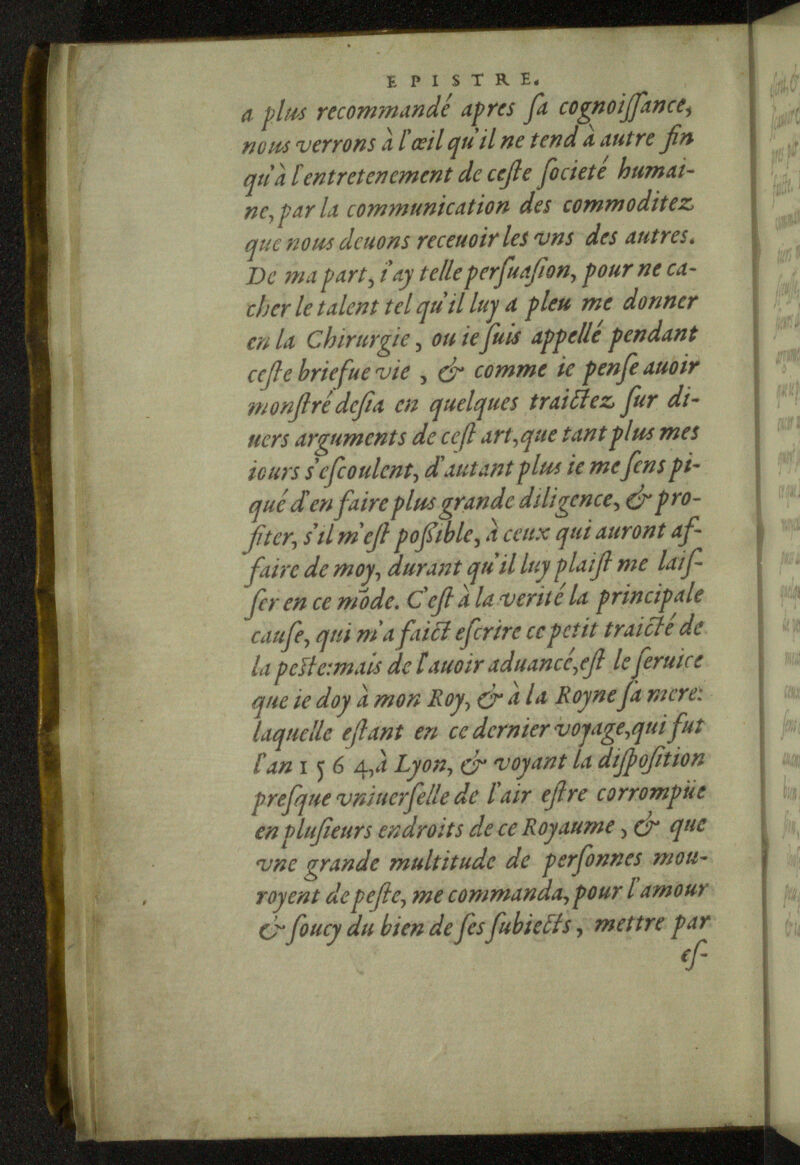 EPISTRE.
a plus recommandé apres ſa cognoiſſance,
nous verrons à l'œil qu'il ne tend à autre fin
qu'à l'entretenement de ceſte ſocieté humai-
ne, par la communication des commoditez
que nous deuons receuoir les vns des autres.
De ma part, i'ay telle perſuaſion, pour ne ca-
cher le talent tel qu'il luy a pleu me donner
en la Chirurgie, ou ie ſuis appellé pendant
ceſte briefue vie, & comme ie penſe auoir
monſtré deſia en quelques traictez ſur di-
uers arguments de ceſt art, que tant plus mes
iours s'eſcoulent, d'autant plus ie me ſens pi-
qué d'en faire plus grande diligence, & pro-
fiter, s'il m'eſt poſsible, à ceux qui auront af-
faire de moy, durant qu'il luy plaiſt me laiſ-
ſer en ce mōde. C'eſt à la verité la principale
cauſe, qui m'a faict eſcrire ce petit traicté de
la peste: mais de l'auoir aduancé, eſt le ſeruice
que ie doy à mon Roy, & à la Royne ſa mere:
laquelle eſtant en ce dernier voyage, qui fut
l'an 1564, à Lyon, & voyant la diſpoſition
preſque vniuerſelle de l'air eſtre corrompüe
en pluſieurs endroits de ce Royaume, & que
vne grande multitude de perſonnes mou-
royent de peſte, me commanda, pour l'amour
& ſoucy du bien de ſes ſubiects, mettre par
eſ-